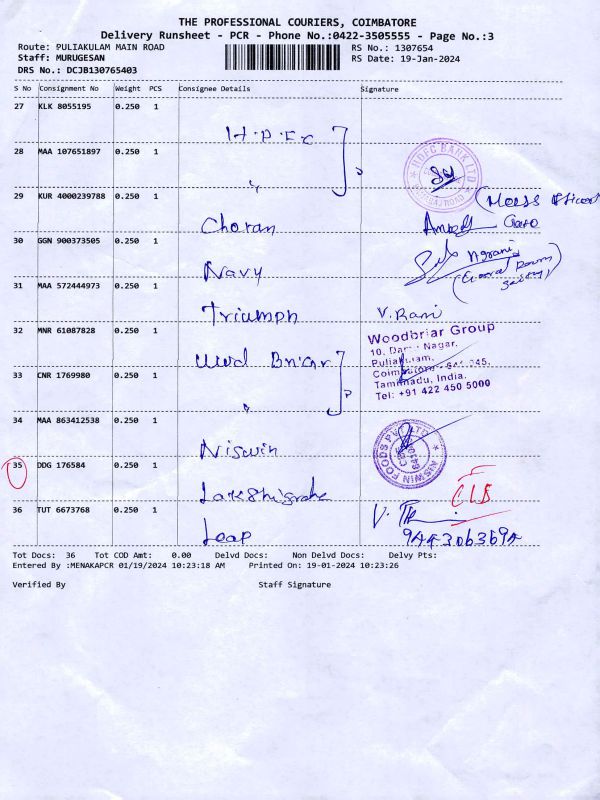 THE PROFESSIONAL COURIERS, COIMBATORE
Delivery Runsheet - PCR - Phone No.:0422-3505555 - Page No.:3
Route: PULIAKULAM MAIN ROAD RS No.: 1307654
Staff: MURUGESAN RS Date: 19-Jan-2024
DRS No.: DCJB130765403
S No Consignment No Weight PCS Consignee Details Signature
27 KLK 8055195 0.250 1
H.D.F.C
28 MAA 107651897 0.250 1
HDFC BANK LTD
29 KUR 4000239788 0.250 1
Charan
30 GGN 900373505 0.250 1
Navy
31 MAA 572444973 0.250 1
Triumph V. Rani
32 MNR 61087828 0.250 1
Woodbriar Group
10, Nagar,
Puliakulam,
Tamilnadu, India.
Tel: +91 422 450 5000
33 CNR 1769980 0.250 1
34 MAA 863412538 0.250 1
Niswin
NISWIN FOODS PVT LTD
35 DDG 176584 0.250 1
CLB
36 TUT 6673768 0.250 1
Leap
Tot Docs: 36 Tot COD Amt: 0.00 Delvd Docs: Non Delvd Docs: Delvy Pts:
Entered By :MENAKAPCR 01/19/2024 10:23:18 AM Printed On: 19-01-2024 10:23:26
Verified By Staff Signature